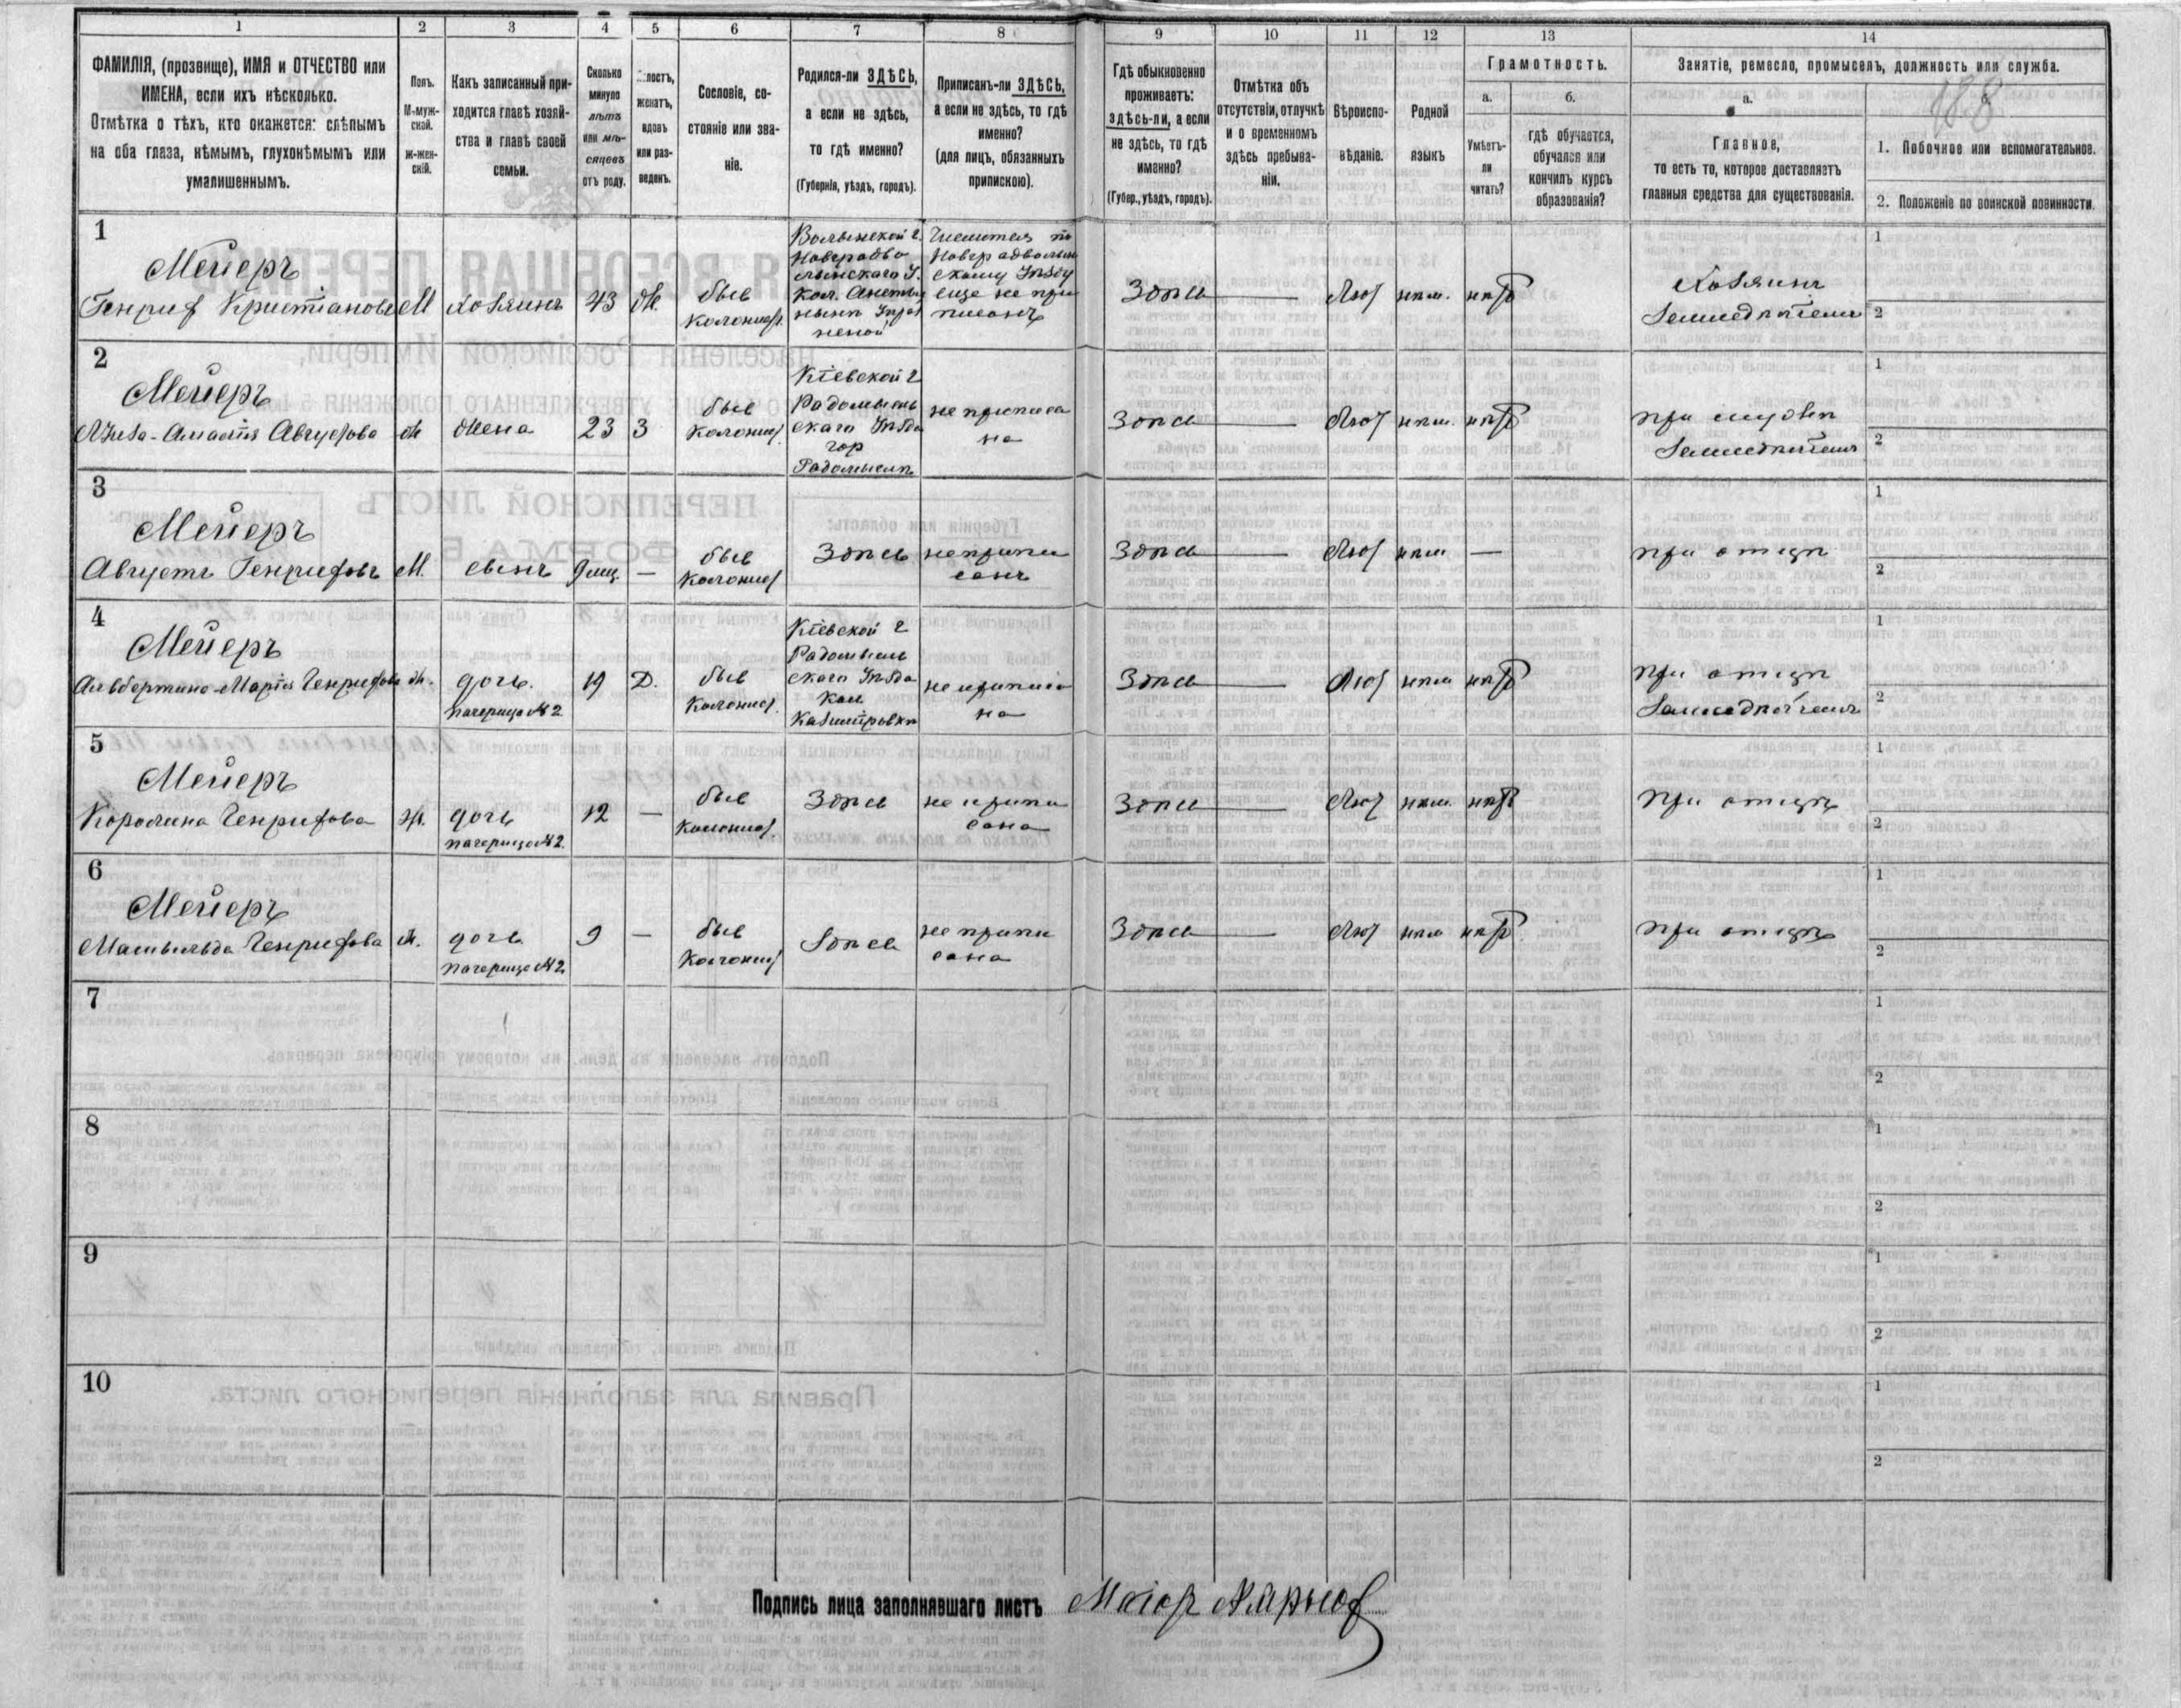 1 2 3 4 5 6 7 8 9 10 11 12 13 14
ФАМИЛІЯ, (прозвище), ИМЯ и ОТЧЕСТВО или
ИМЕНА, если ихъ нѣсколько.
Отмѣтка о тѣхъ, кто окажется: слѣпымъ
на оба глаза, нѣмымъ, глухонѣмымъ или
умалишеннымъ.
Полъ.
М-муж-
ской.
ж-жен-
скій.
Какъ записанный при-
ходится главѣ хозяй-
ства и главѣ своей
семьи.
Сколько
минуло
лѣтъ
или мѣ-
сяцевъ
отъ роду.
женатъ,
вдовъ
или раз-
веденъ.
Сословіе, со-
стояніе или зва-
ніе.
Родился-ли ЗДѢСЬ,
а если не здѣсь,
то гдѣ именно?
(Губернія, уѣздъ, городъ).
Приписанъ-ли ЗДѢСЬ,
а если не здѣсь, то гдѣ
именно?
(для лицъ, обязанныхъ
припискою).
Гдѣ обыкновенно
проживаетъ:
здѣсь-ли, а если
не здѣсь, то гдѣ
именно?
(Губер., уѣздъ, городъ).
Отмѣтка объ
отсутствіи, отлучкѣ
и о временномъ
здѣсь пребыва-
ніи.
Вѣроиспо-
вѣданіе.
Родной
языкъ
Грамотность.
а.
Умѣетъ-
ли
читать?
б.
гдѣ обучается,
обучался или
кончилъ курсъ
образованія?
Занятіе, ремесло, промыселъ, должность или служба.
а.
Главное,
то есть то, которое доставляетъ
главныя средства для существованія.
1. Побочное или вспомогательное.
2. Положеніе по воинской повинности.
188
1
Мейеръ
Генриф Христіановъ М хозяинъ 43 ж.
быв
колонист
Волынской г.
Новградво
лынскаго У.
Кол.
Числится по
Новградволын
скому Уѣзду
еще не при
писанъ
Здѣсь — Лют нѣм. нѣт
Хозяинъ
Земледѣлецъ
1
2
2
Мейеръ
Луиза-Амалія Августова ж жена 23 З
быв
колонист
Кіевской г
Радомысль
скаго Уѣзда
гор
Радомысль
не приписа
на
Здѣсь — Лют нѣм. нѣт
при мужѣ
Земледѣлецъ
1
2
3
Мейеръ
Августъ Генрифовъ М. сынъ 9 мц. —
быв
колонист
Здѣсь
не припи
санъ
Здѣсь — Лют нѣм —
при отцѣ
1
2
4
Мейеръ
Альбертина-Марія Генрифова ж. дочь. 19 Д.
падчерица №2
быв
колонист.
Кіевской г
Радомысль
скаго Уѣзда
кол
Казимировкѣ
не приписа
на
Здѣсь — Лют нѣм нѣт
при отцѣ
Земледѣлецъ
1
2
5
Мейеръ
Каролина Генрифова ж. дочь 12 —
падчерица №2
быв
колонист.
Здѣсь
не припи
сана
Здѣсь — Лют нѣм. нѣт
при отцѣ
1
2
6
Мейеръ
Матильда Генрифова ж. дочь 9 —
падчерица №2
быв
колонист
Здѣсь
не припи
сана
Здѣсь — Лют нѣм нѣт
при отцѣ
1
2
7
1
2
8
1
2
9
1
2
10
1
2
Подпись лица заполнявшаго листъ